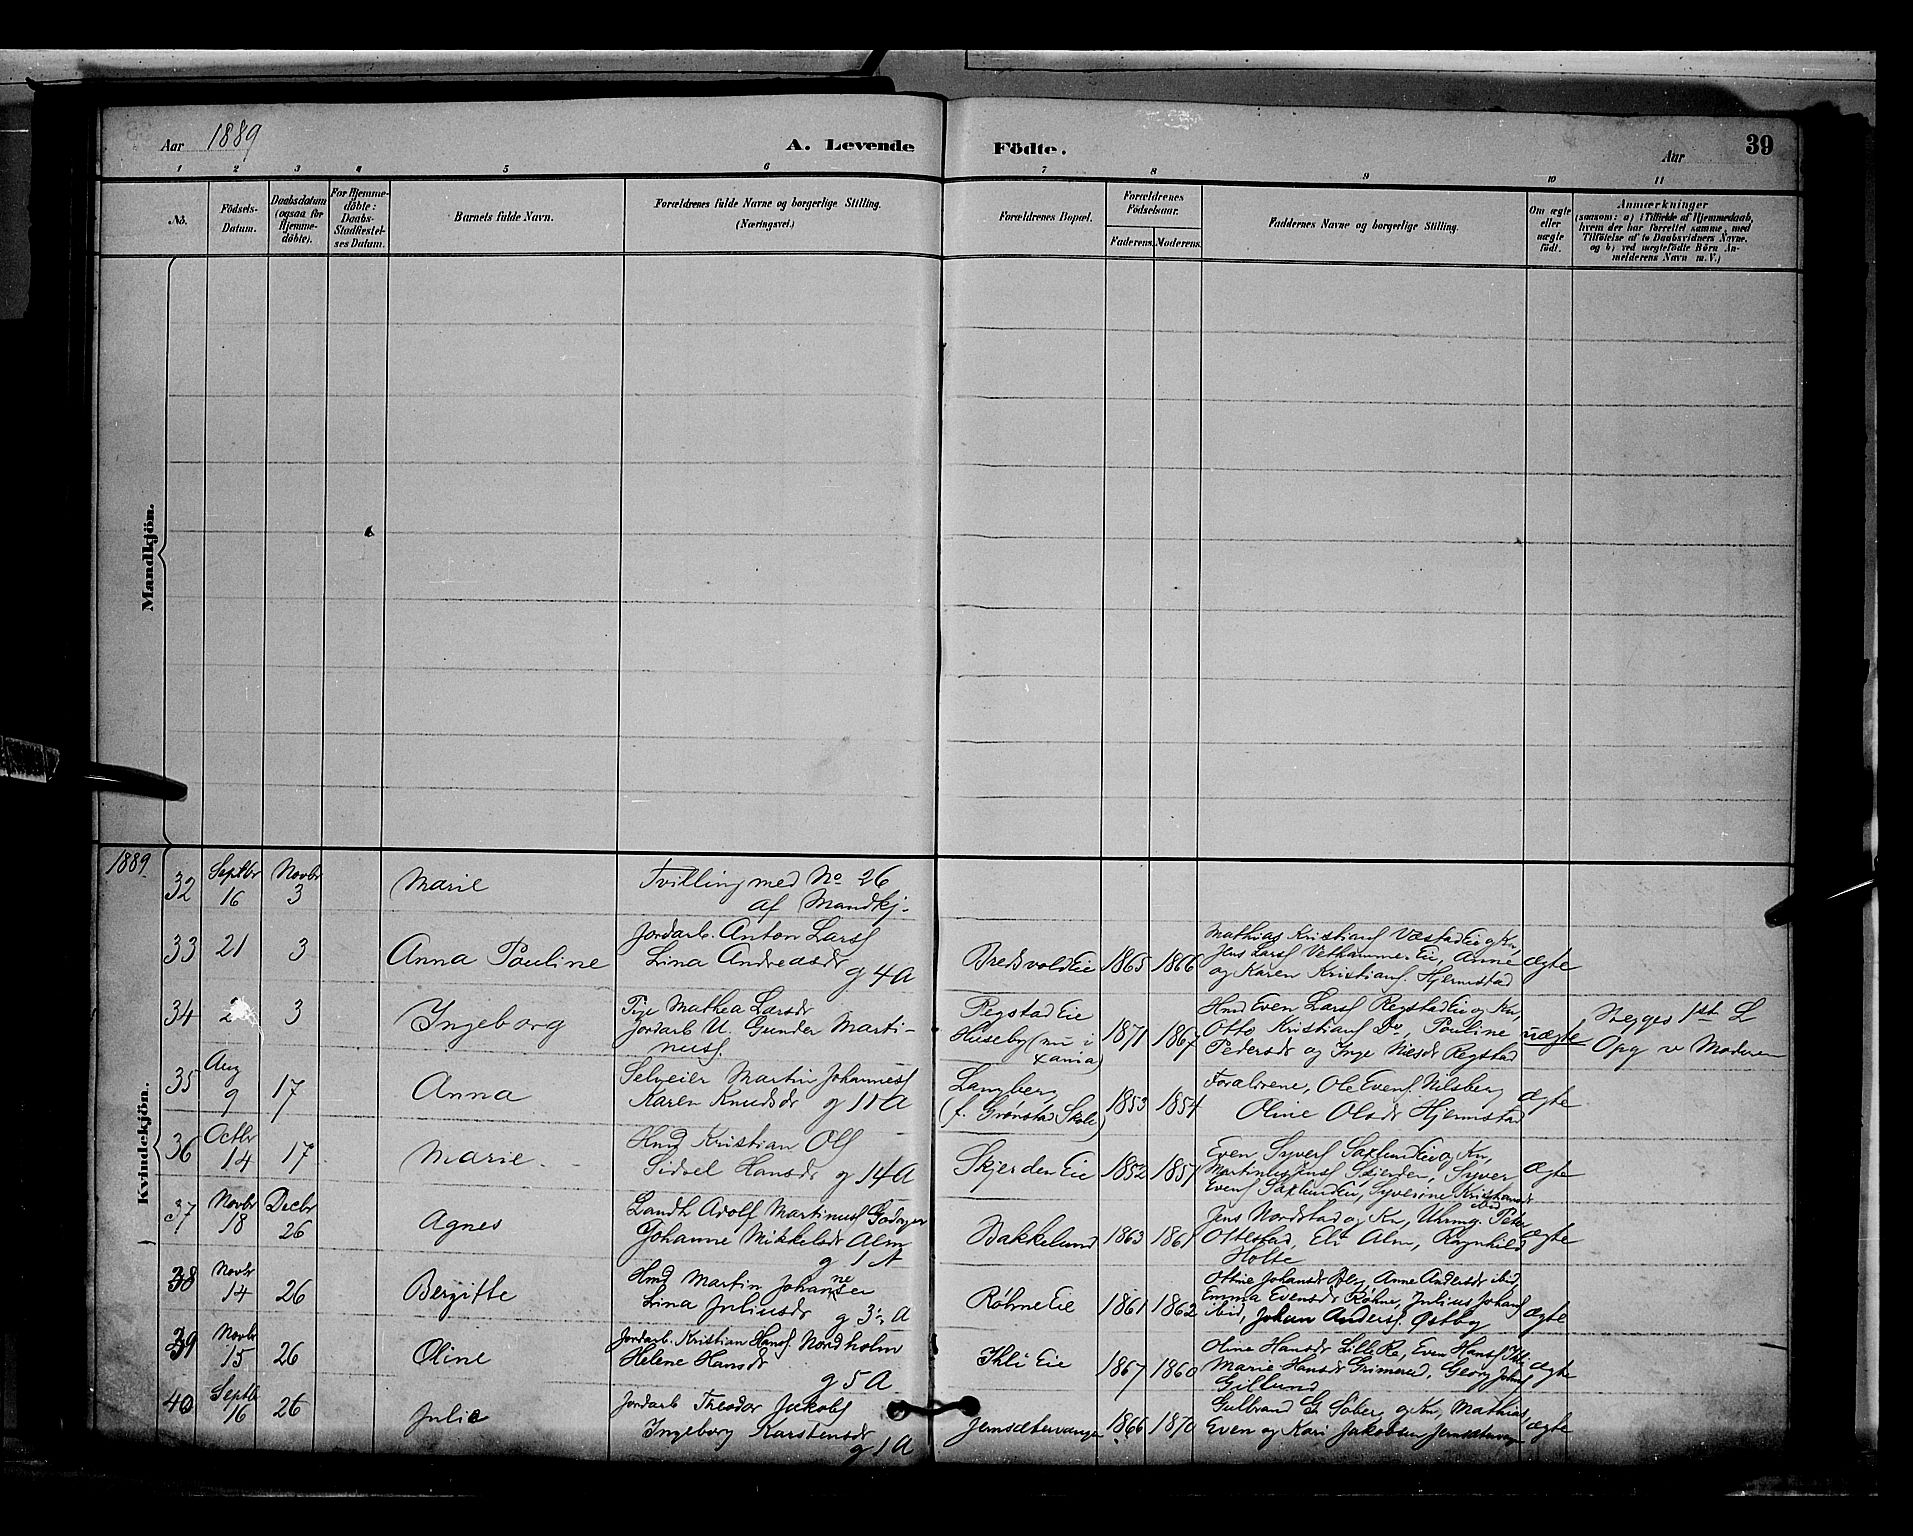 Aar 1889
A. Levende Födte.
Aar
39
1 2 3 4 5 6 7 8 9 10 11
No.
Födsels-Datum.
Daabsdatum (ogsaa for Hjemme-döbte).
For Hjemme-döbte: Daabs-Stadfæstel-ses Datum.
Barnets fulde Navn.
Forældrenes fulde Navne og borgerlige Stilling. (Næringsvei.)
Forældrenes Bopæl.
Forældrenes Födselsaar.
Faderens. Moderens.
Faddernes Navne og borgerlige Stilling.
Om ægte eller uægte födt.
Anmærkninger
(saasom: a) i Tilfælde af Hjemmedaab, hvem der har forrettet samme, med Tilföielse af to Daabsvidners Navne, og b) ved uægtefödte Börn An-melderens Navn m. V.)
Mandkjön.
Kvindekjön.
1889
32 Septbr 16 Novbr 3 Marie Tvilling med No 26
af Mandkj.
33 21 3 Anna Pouline Jordarb. Anton Larss
Lina Andreasdr g 4 A
Bredsvold Eie 1865 1866
Mathias Kristians Væstad Eie og Kn,
Jens Larss Vethammer Eie, Anne
og Karen Kristians. Hjermstad
ægte
34 2 3 Ingeborg Pige Mathea Larsdr
Jordarb U. Gunder Marti-
nuss.
Regstad Eie
Huseby (nu i
Xania)
1871 1867
Hmd Even Larss Regstad Eie og Kn,
Otto Kristians Do, Pouline
Pedersdr og Inge Nilsdr Regstad
uægte
Begges 1st L
Opg v Moderen
35 Aug 9 17 Anna Selveier Martin Johanness
Karen Knudsdr g 11 A
Langberg
(f. Grønstad Skole)
1853 1854
Forældrene, Ole Evens Nilsberg
Oline Olsdr Hjermstad
ægte
36 Octbr 14 17 Marie Hmd Kristian Ols
Sidsel Hansdr g 14 A
Skjerden Eie 1852 1857
Even Syvers Saxlund Eie og Kn,
Martinus Jens Skjerden, Syver
Evens Saxlund Eie, Syverine Kristiansdr
ibid
ægte
37 Novbr 18 Decbr 26 Agnes Landh. Adolf Martinus
Johanne Mikkelsdr Alm
g 1 A
Bakkelund 1863 1861
Jens Nordstad og Kn, Uhrmg. Peter
Ottestad, Eli Alm, Ragnhild
Holte
ægte
38 Novbr 14 26 Bergitte Hmd Martin Johannesen
Lina Juliusdr g 3 A
Røhne Eie 1861 1862
Ottine Johansdr Berg, Anne Andersdr ibid,
Emma Evensdr Røhne, Julius Johans
ibid, Johan Anders. Østby
ægte
39 Novbr 15 26 Oline Jordarb. Kristian Hans. Nordholm
Helene Hansdr
g 5 A
Ihli Eie 1867 1860
Oline Hansdr Lille Re, Even Hanss Ihle,
Marie Hansdr Grimerud, Georg Johns
Gillund
ægte
40 Septbr 16 26 Julie Jordarb Theodor Jakobs
Ingeborg Karstensdr
g 1 A
Jemsætervangen 1866 1870
Gulbrand G Sæter, og Kn, Mathias,
Even og Kari Jakobsen Jemsætervangen
ægte